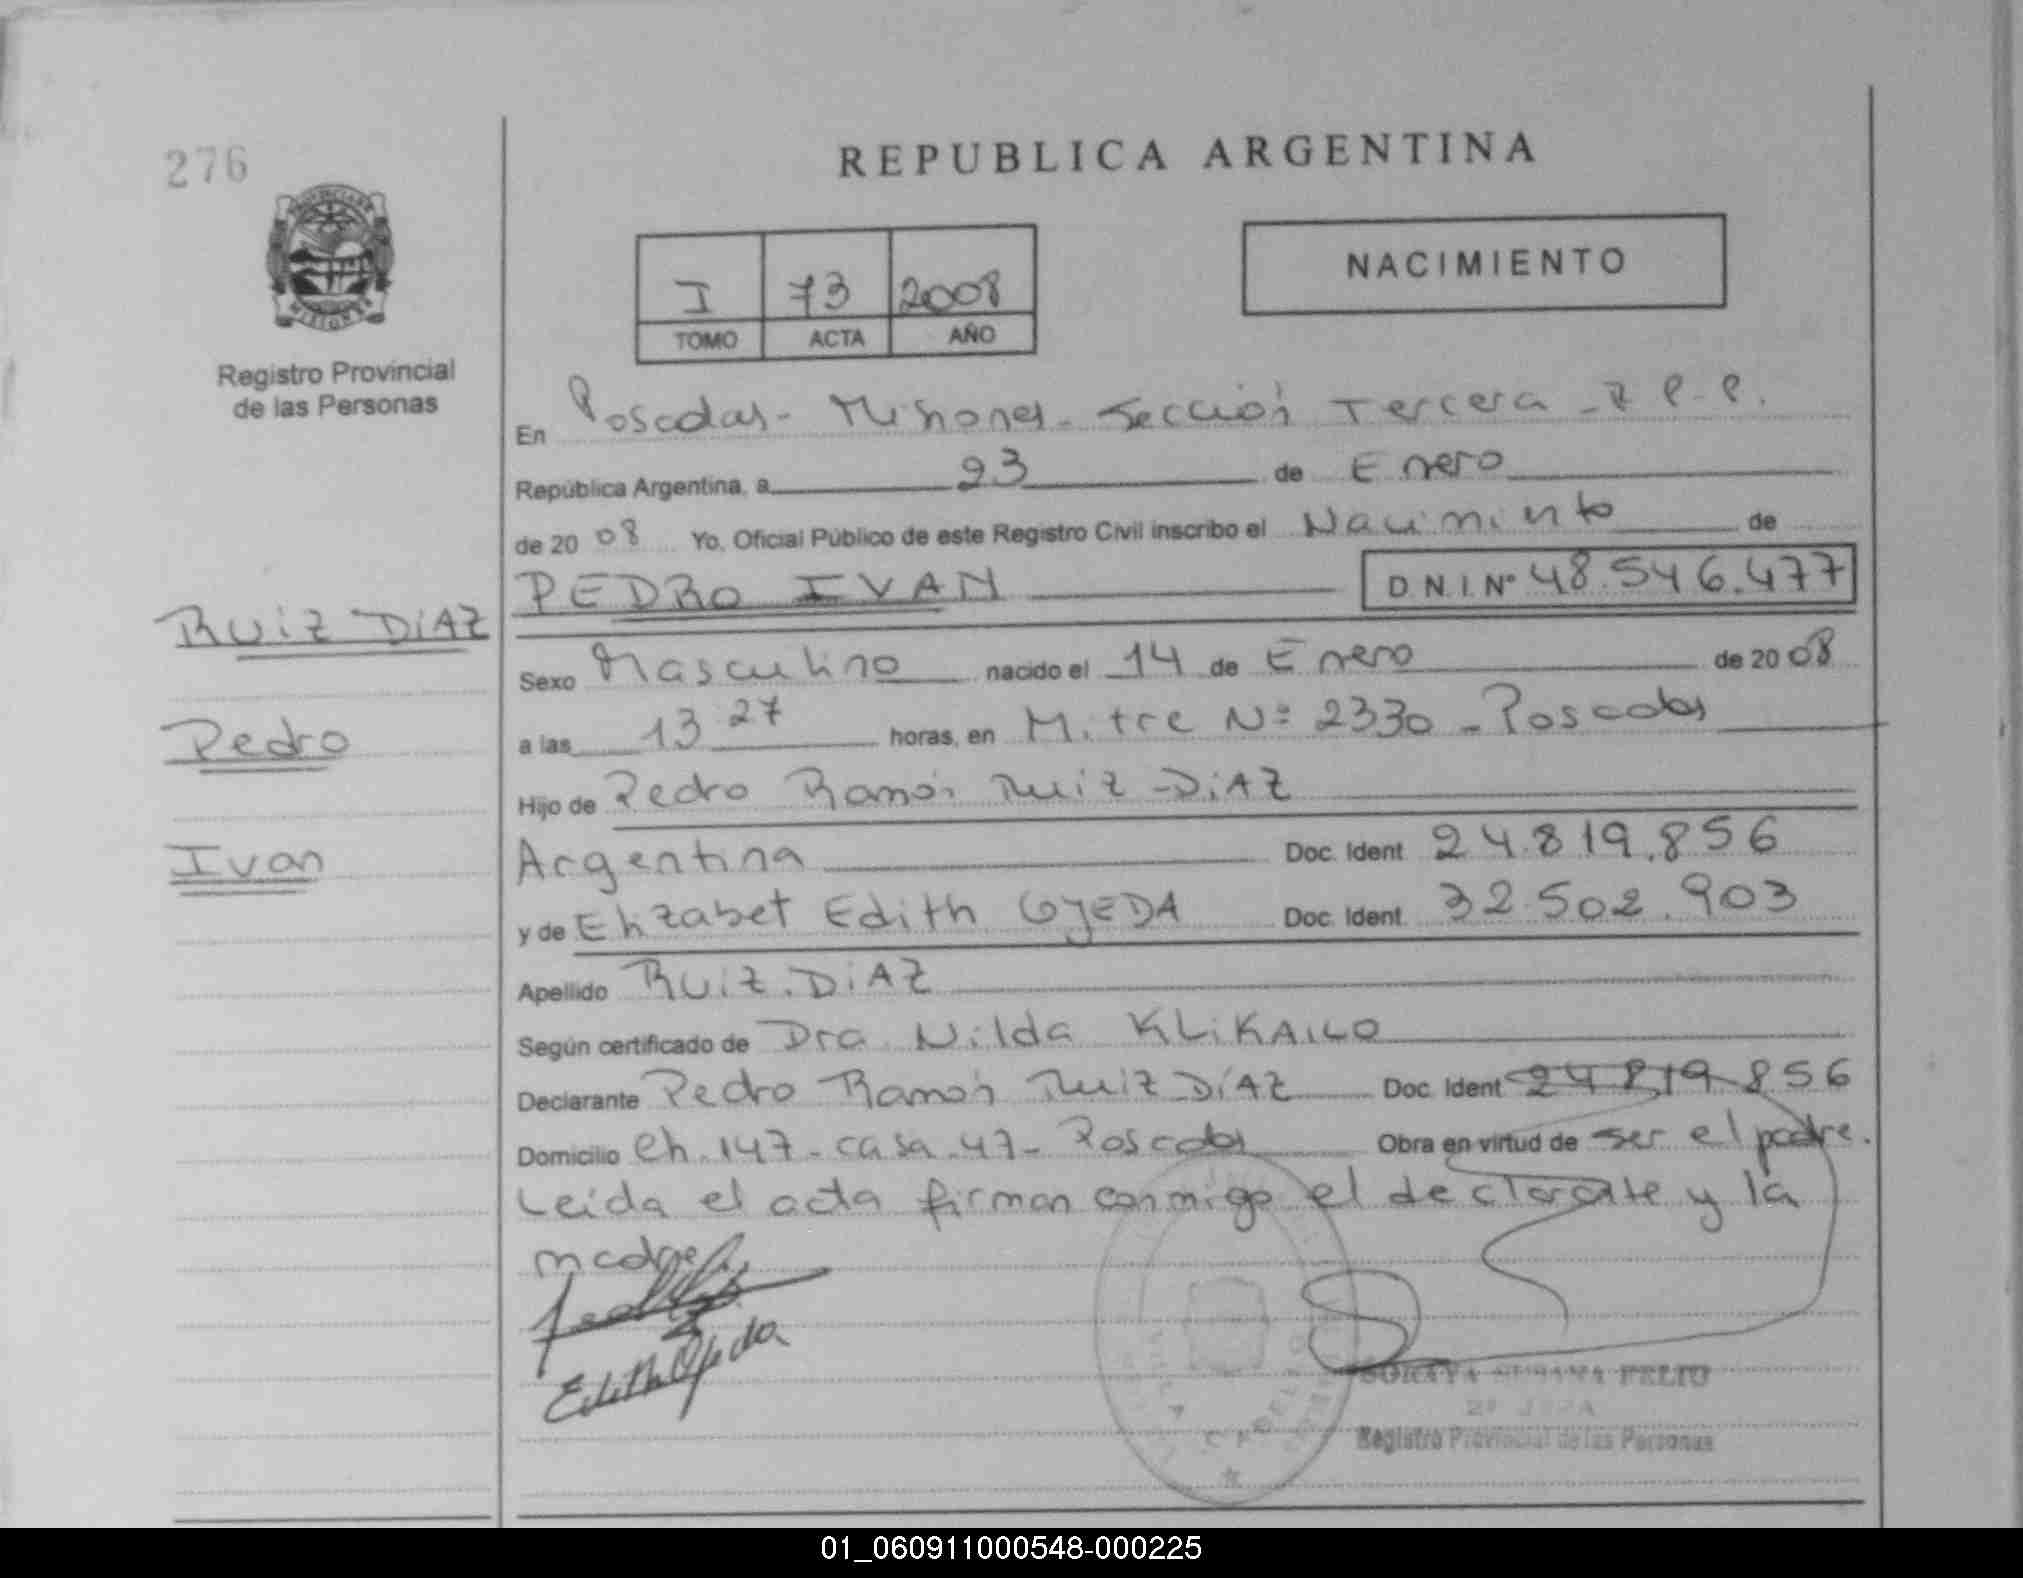 276
REPUBLICA ARGENTINA
PROVINCIA DE
MISIONES
Registro Provincial
de las Personas
I 73 2008
TOMO ACTA AÑO
NACIMIENTO
En Posadas - Misiones - Sección Tercera - R P. P.
República Argentina, a 23 de Enero
de 20 08 Yo, Oficial Público de este Registro Civil inscribo el Nacimiento de
PEDRO IVAN D.N.I. Nº 48.546.477
RUIZ DIAZ
Pedro
Ivan
Sexo Masculino nacido el 14 de Enero de 20 08
a las 13 27 horas, en Mitre Nº 2330 - Posadas
Hijo de Pedro Ramón Ruiz - DiAZ
Argentina Doc. Ident 24.819.856
y de Elizabet Edith OJEDA Doc. Ident. 32.502.903
Apellido RUIZ. DiAZ
Según certificado de Dra Nilda KLiKAILO
Declarante Pedro Ramón Ruiz DíAZ Doc. Ident 24 819 856
Domicilio Ch. 147 - casa 47 - Posadas Obra en virtud de ser el padre.
Leida el acta firman conmigo el declarante y la
madre.
Edith Ojeda
SORAYA SUSANA FELIU
Registro Provincial de las Personas
01_060911000548-000225